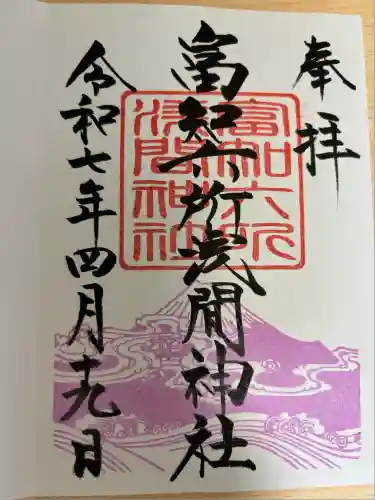 奉拝
富知六所浅間神社
令和七年四月十九日
富知六所
浅間神社